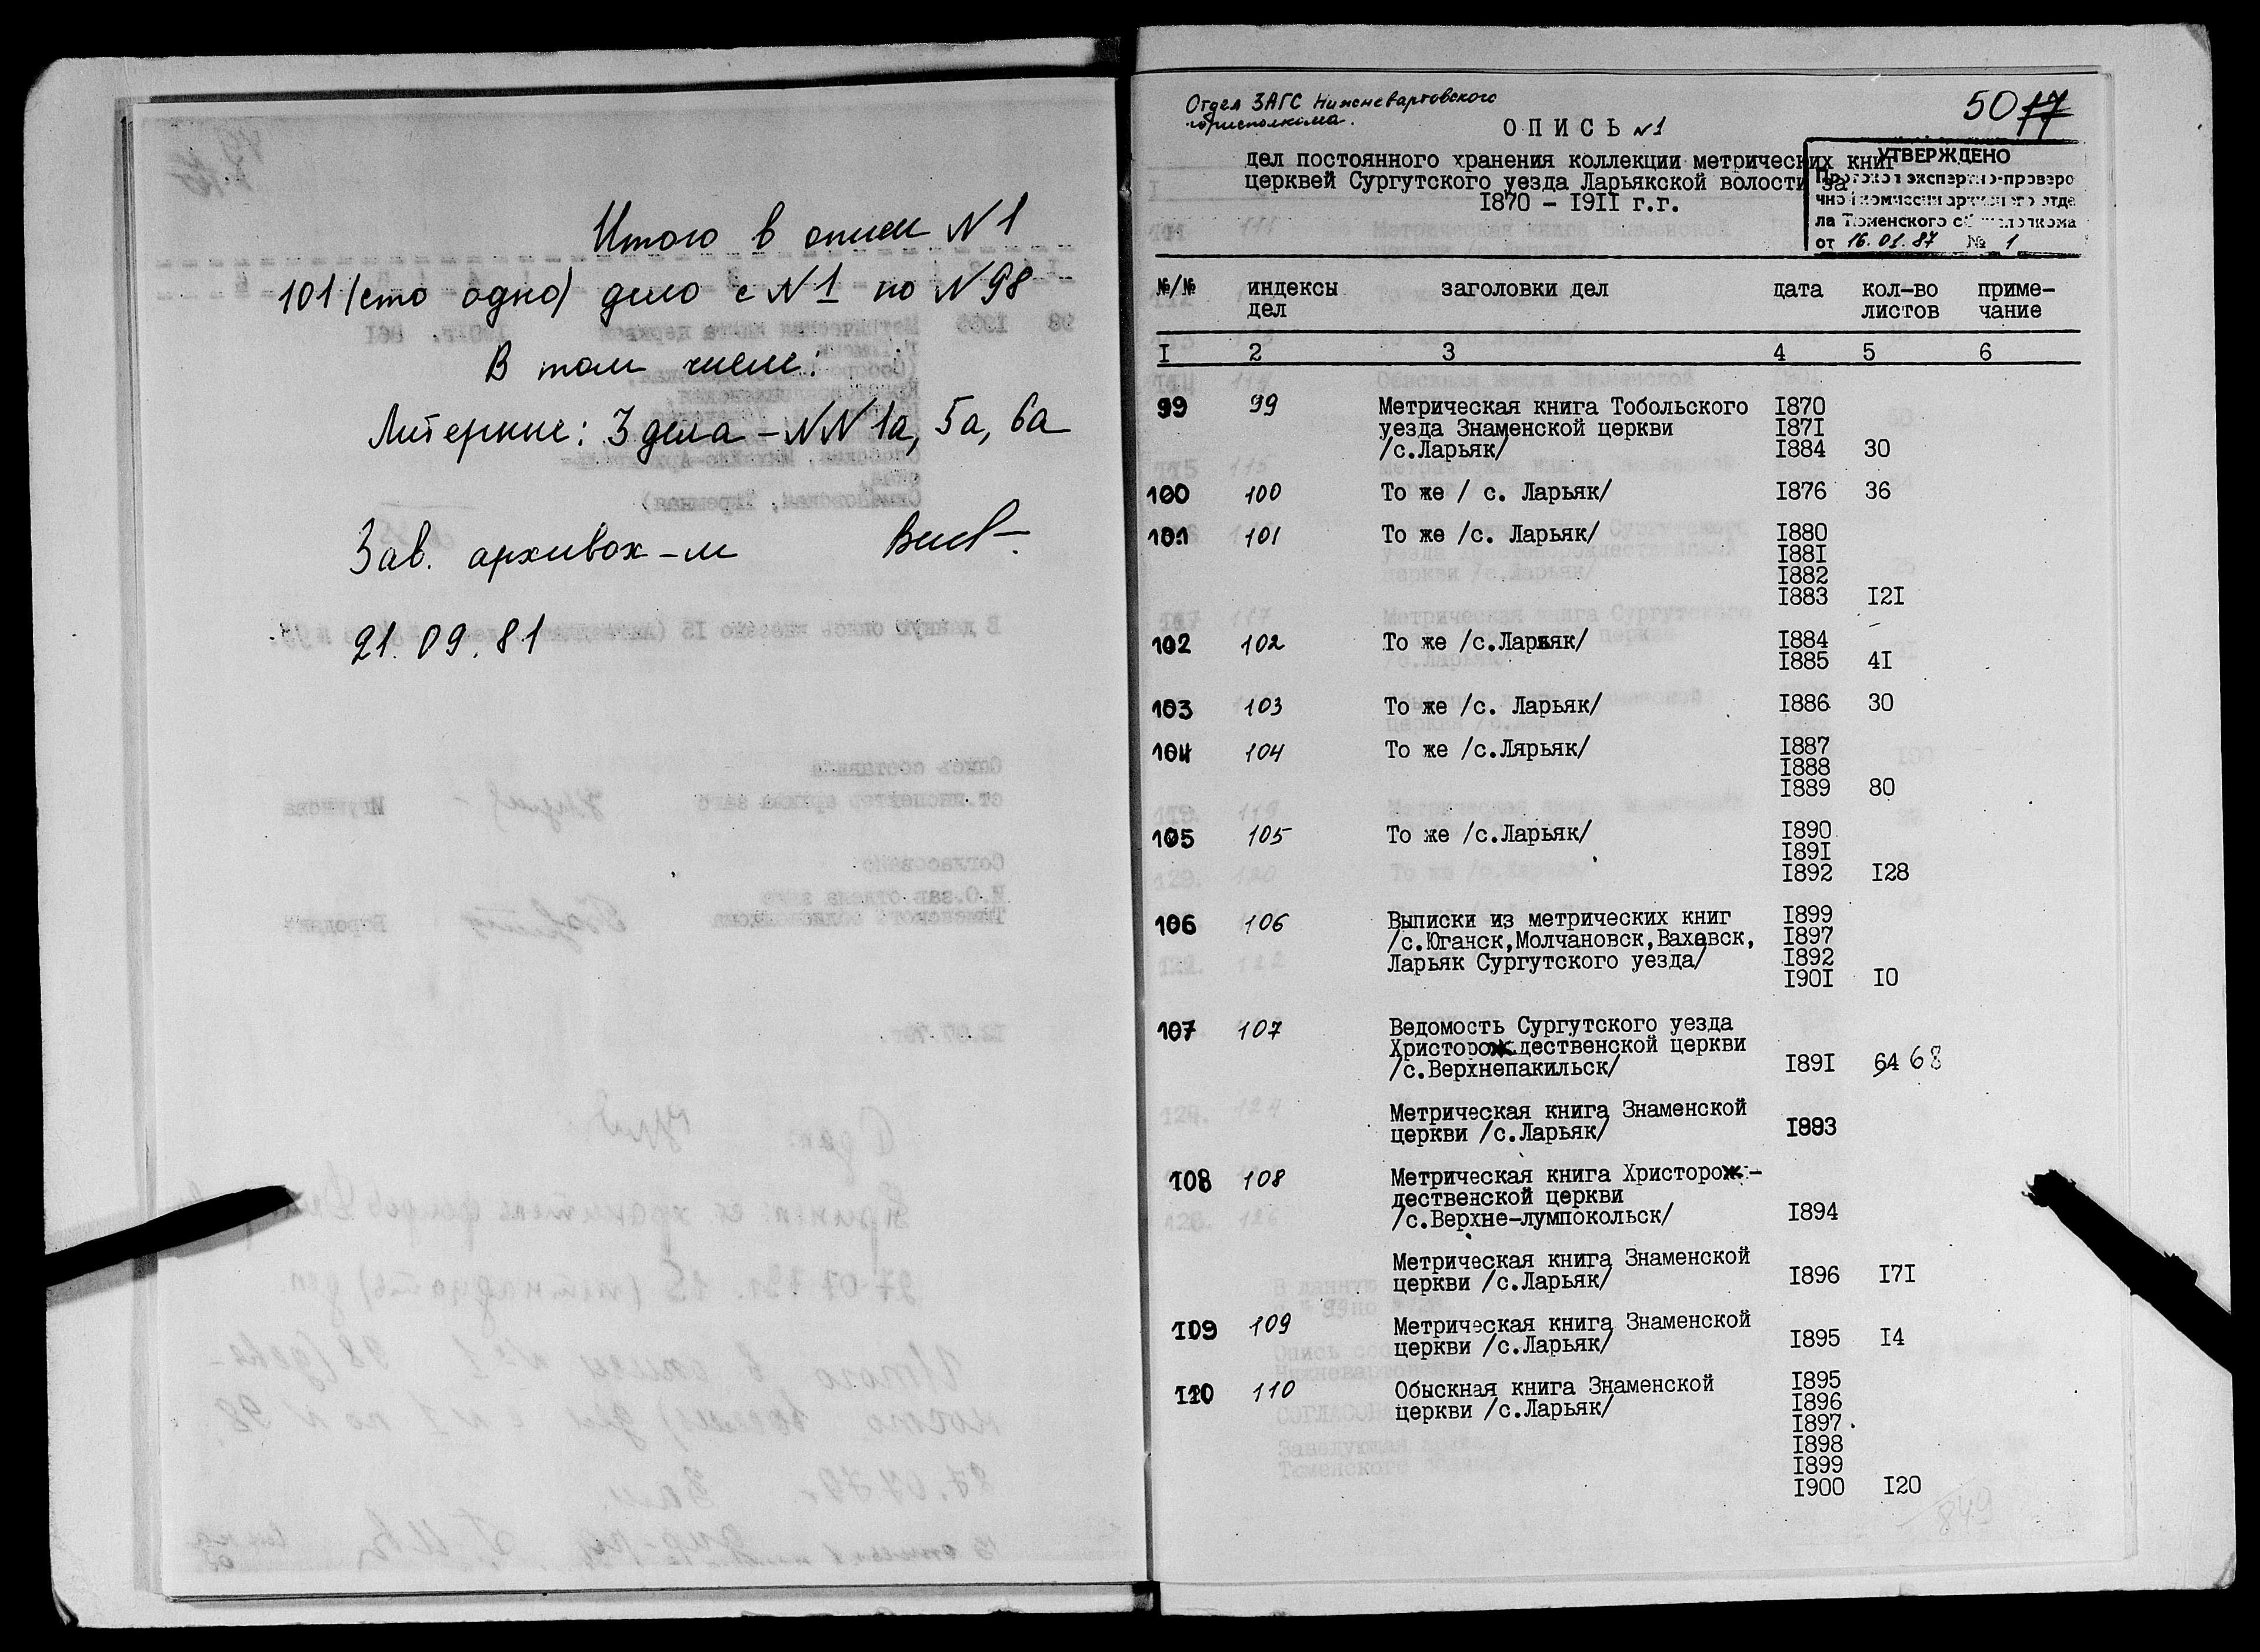 Итого в описи N 1
101 (сто одно) дело с N 1 по N 98
В том числе:
Литерные: 3 дела - NN 1а, 5а, 6а
Зав. архивох-м
21.09.81
Отдел ЗАГС Нижневартовского
горисполкома.
50 77
ОПИСЬ №1
дел постоянного хранения коллекции метрических книг
церквей Сургутского уезда Ларьякской волости за
I870 - I9II г.г.
УТВЕРЖДЕНО
Протокол экспертно-проверо
чной комиссии архивного отде
ла Тюменского облисполкома
от 16.01.87 № 1
№/№ индексы дел заголовки дел дата кол-во листов приме-чание
I 2 3 4 5 6
99 99 Метрическая книга Тобольского I870
уезда Знаменской церкви I87I
/с.Ларьяк/ I884 30
100 100 То же / с. Ларьяк/ I876 36
101 101 То же /с. Ларьяк/ I880
I88I
I882
I883 I2I
102 102 То же /с.Ларьяк/ I884
I885 4I
103 103 То же /с. Ларьяк/ I886 30
104 104 То же /с.Лярьяк/ I887
I888
I889 80
105 105 То же /с.Ларьяк/ I890
I89I
I892 I28
106 106 Выписки из метрических книг I899
/с.Юганск,Молчановск,Вахавск, I897
Ларьяк Сургутского уезда/ I892
I90I I0
107 107 Ведомость Сургутского уезда
Христорождественской церкви
/с.Верхнепакильск/ I89I 64 68
Метрическая книга Знаменской
церкви /с.Ларьяк/ I893
108 108 Метрическая книга Христорож-
дественской церкви
/с.Верхне-лумпокольск/ I894
Метрическая книга Знаменской
церкви /с.Ларьяк/ I896 I7I
109 109 Метрическая книга Знаменской
церкви /с.Ларьяк/ I895 I4
110 110 Обыскная книга Знаменской I895
церкви /с.Ларьяк/ I896
I897
I898
I899
I900 I20
849